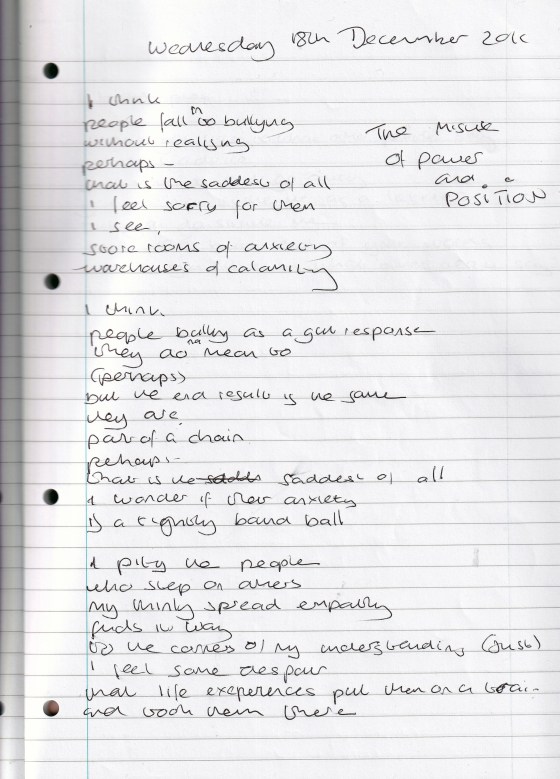 Wednesday 18th December 201
The Misuse
of power
and
POSITION
I think
people fall into bullying
without realising
perhaps –
that is the saddest of all
I feel sorry for them
I see,
store rooms of anxiety
warehouses of calamity
I think.
people bully as a gut response
they do not mean to
(perhaps)
but the end result is the same
they are
part of a chain
perhaps –
that is the saddest of all
I wonder if their anxiety
is a tightly band ball
I pity the people
who step on others
my thinly spread empathy
finds its way
to the corners of my understanding (just)
I feel some despair
that life experiences put them on a train
and took them there